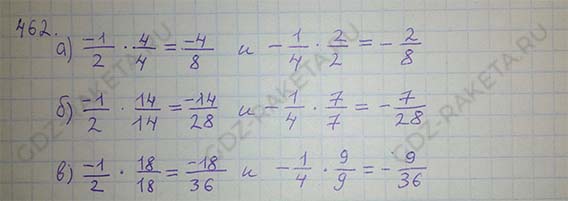 462.
а) -1/2 · 4/4 = -4/8 и -1/4 · 2/2 = -2/8
б) -1/2 · 14/14 = -14/28 и -1/4 · 7/7 = -7/28
в) -1/2 · 18/18 = -18/36 и -1/4 · 9/9 = -9/36
GDZ-RAKETA.RU
GDZ-RAKETA.RU
GDZ-RAKETA.RU